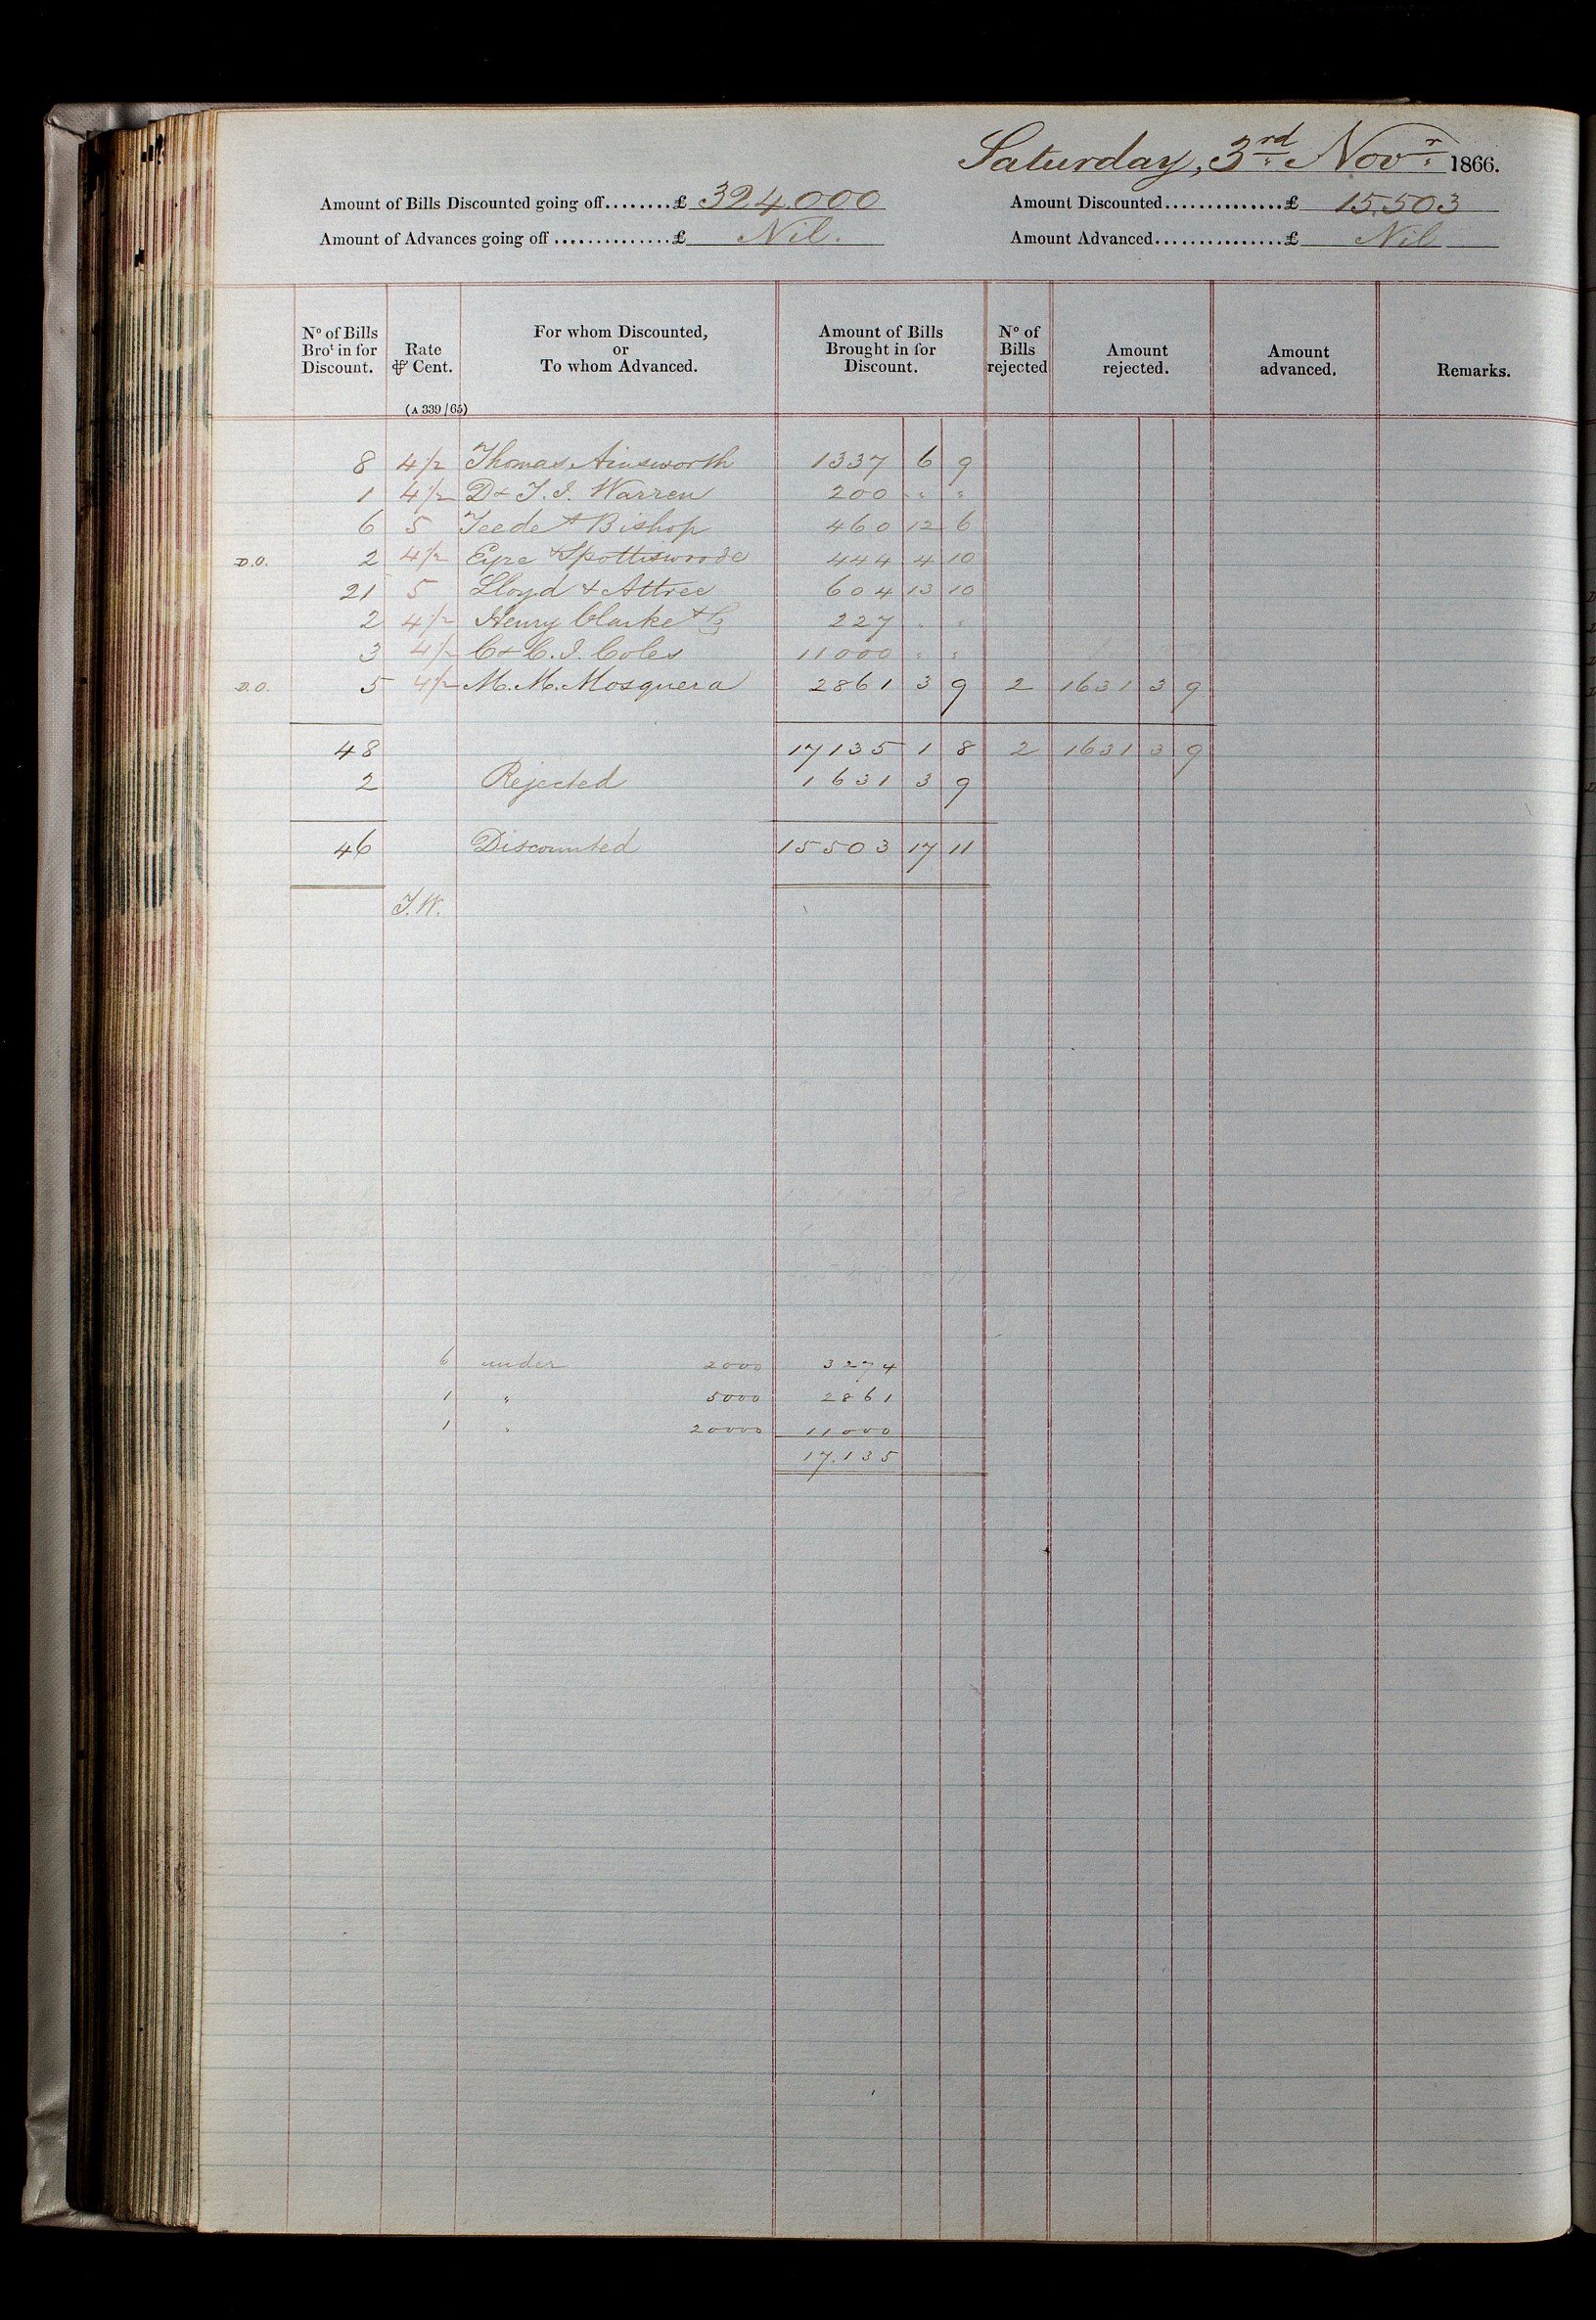 Saturday, 3rd Novr 1866.
Amount of Bills Discounted going off........£ 324.000 Amount Discounted..............£ 15.503
Amount of Advances going off ..............£ Nil. Amount Advanced...............£ Nil
No of Bills Brot in for Discount. Rate ⅌ Cent. For whom Discounted, or To whom Advanced. Amount of Bills Brought in for Discount. No of Bills rejected Amount rejected. Amount advanced. Remarks.
(A 339/65)
8 4½ Thomas Ainsworth 1337 6 9
1 4½ D & T. I. Warren 200 " "
6 5 Teede & Bishop 460 12 6
D.O. 2 4½ Eyre & Spottiswoode 444 4 10
21 5 Lloyd & Attree 604 13 10
2 4½ Henry Clarke & Co 227 " "
3 4½ C & C. I. Coles 11000 " "
D.O. 5 4½ M. M. Mosquera 2861 3 9 2 1631 3 9
48 17135 1 8 2 1631 3 9
2 Rejected 1631 3 9
46 Discounted 15503 17 11
T.W.
6 under 2000 3274
1 " 5000 2861
1 " 20000 11000
17.135